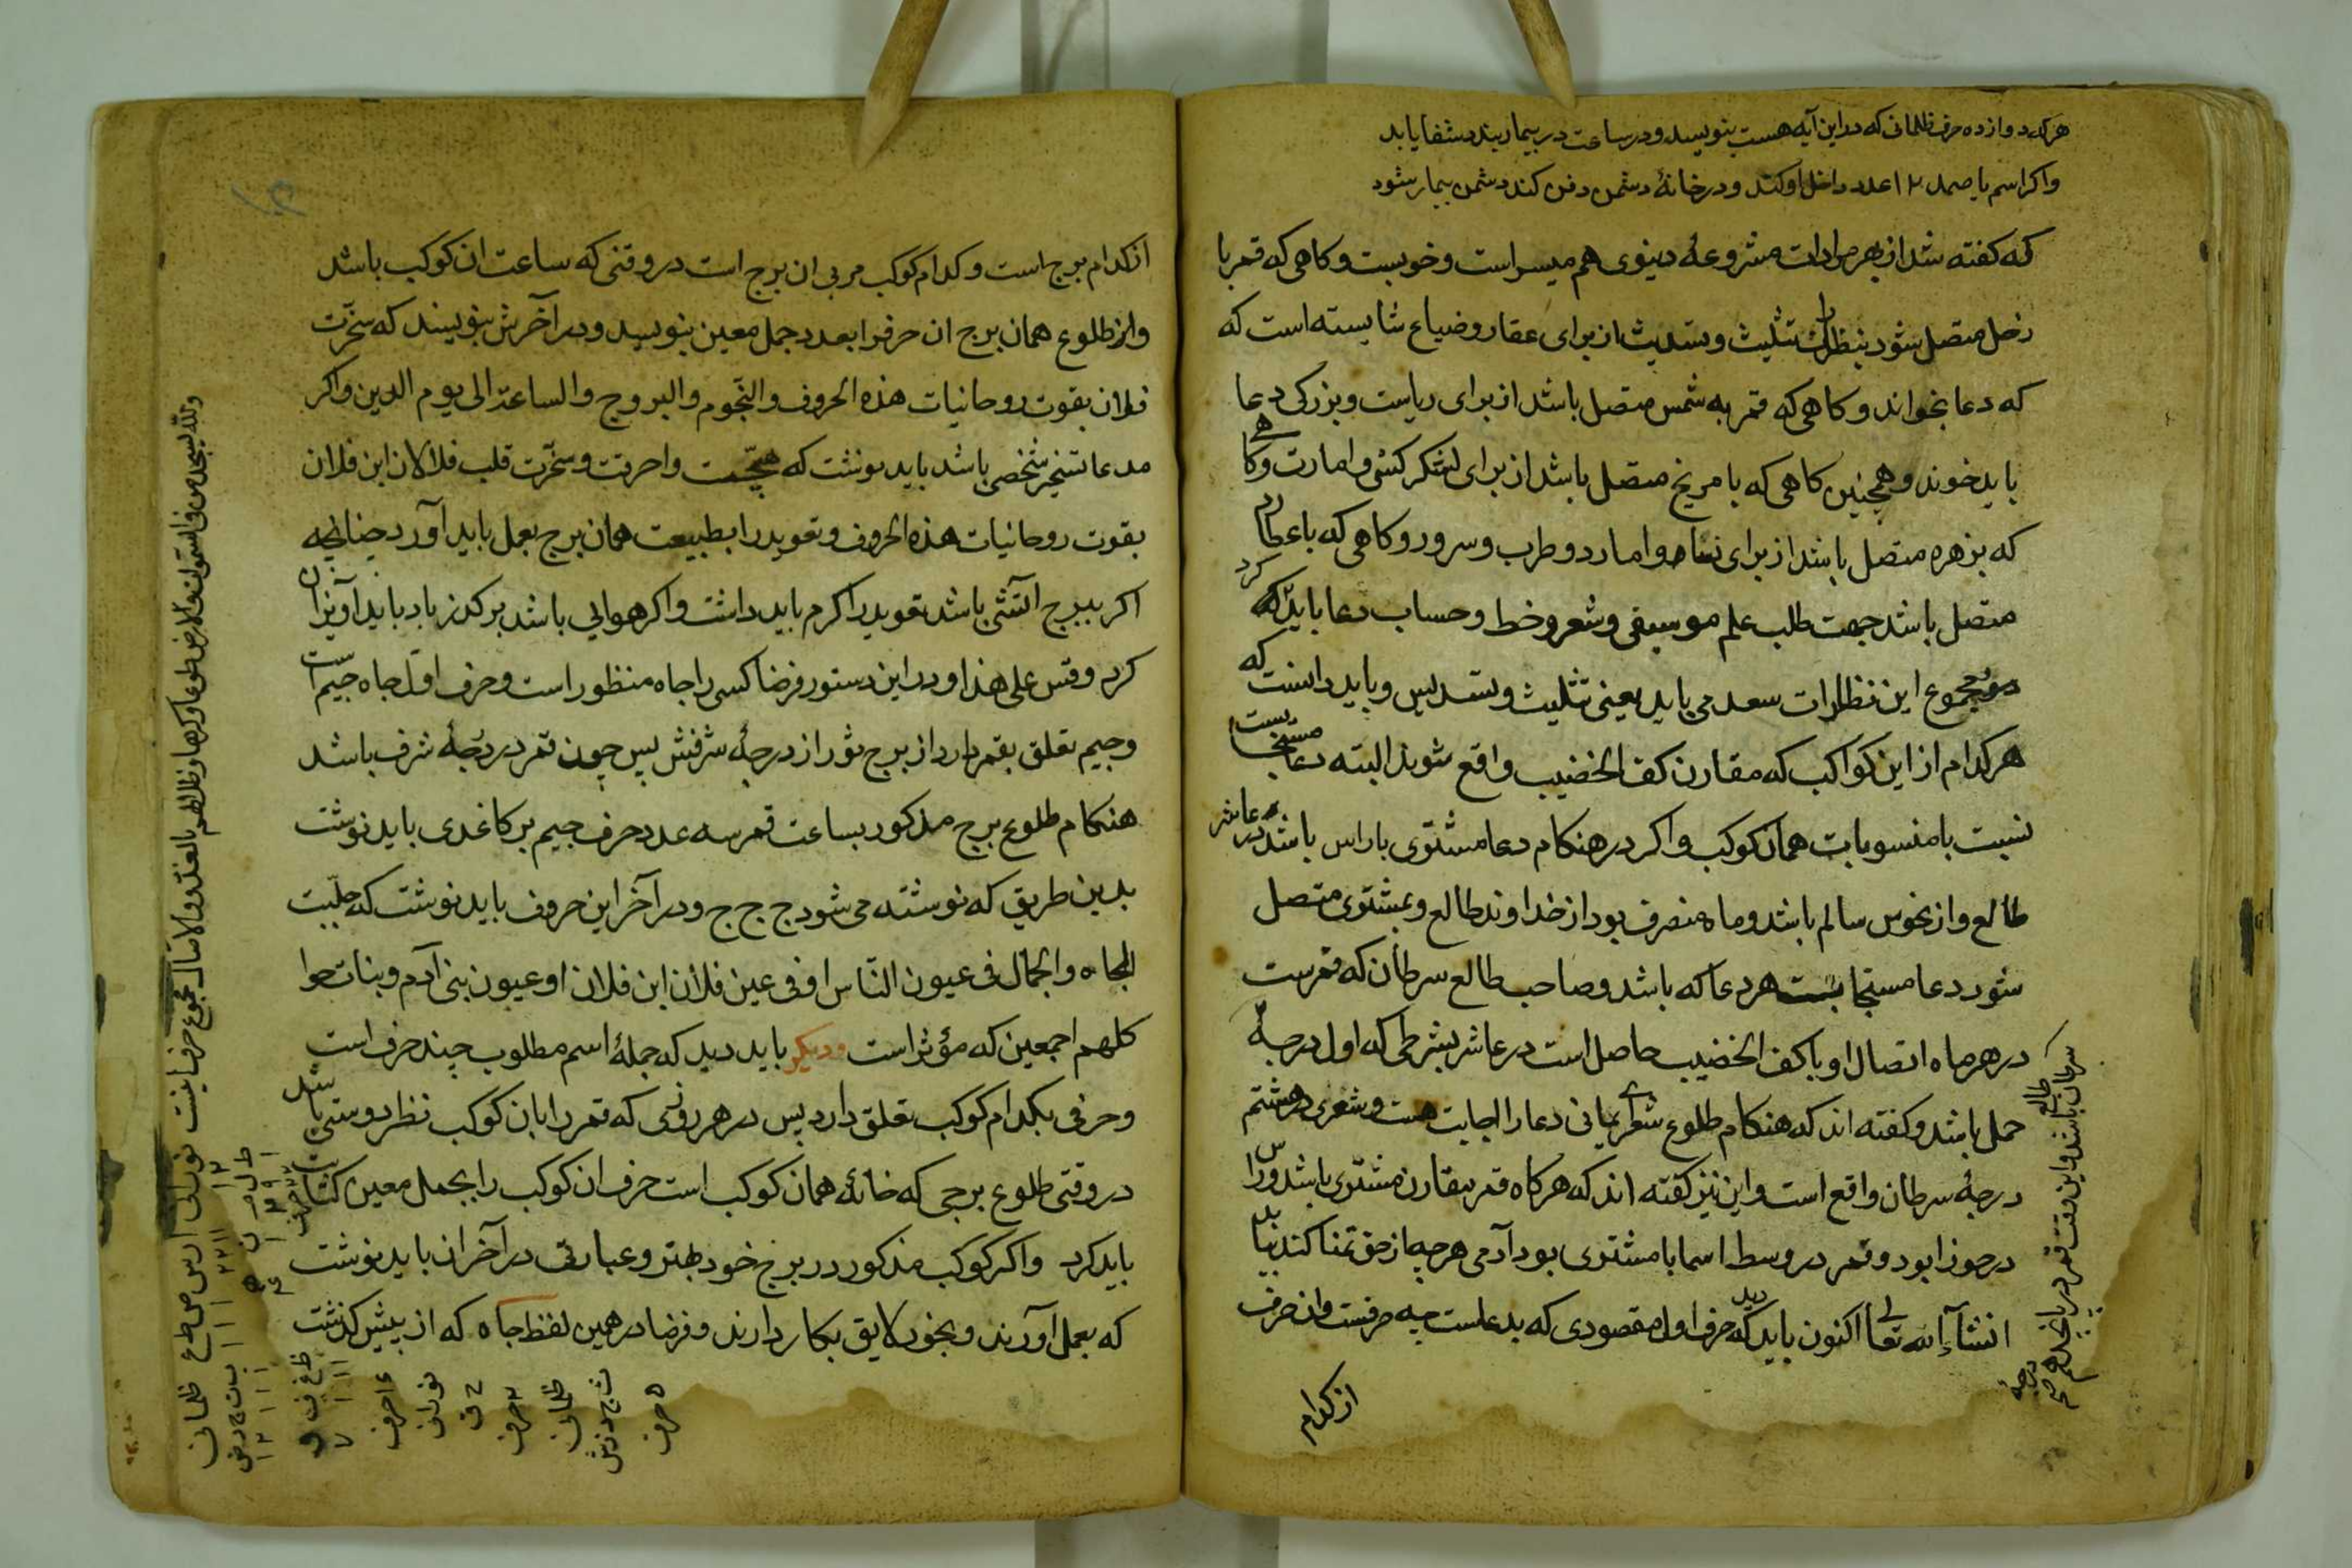 هرکه دوازده حرف ظلمانی که در این آیه هست بنویسد و در ساعت در بیمار بندد شفا یابد
واکر اسم یا صمد ۱۲ عدد داخل او کند و در خانهٔ دشمن دفن کند دشمن بیمار شود
که کفته شد از بهر مرادات مشروعهٔ دینوی هم میسر است و خوبست و کاهی که قمر با
زحل متصل شود بنظر تثلیث و تسدیث از برای عقار و ضیاع شایسته است که
که دعا بخواند و کاهی که قمر به شمس متصل باشد از برای ریاست و بزرکی دعا
باید خوند و همچنین کاهی که با مریخ متصل باشد از برای لشکر کشی و امارت و کاهی
که بزهره متصل باشد از برای نساء و امارد و طرب و سرور و کاهی که با عطارد
متصل باشد جهت طلب علم موسیقی و شعر و خط و حساب دعا باید کرد که
مجموع این نظرات سعد می باید یعنی تثلیث و تسدیس و باید دانست که
هرکدام از این کواکب که مقارن کف الخضیب واقع شوند البته دعا مستجابست
نسبت با منسوبات همان کوکب و اکر در هنکام دعا مشتری با راس باشد در عاشر
طالع و از نحوس سالم باشد و ماه منصرف بود از خداوند طالع و بمشتری متصل
شود دعا مستجابست هر دعا که باشد و صاحب طالع سرطان که قمرست
در هر ماه اتصال او با کف الخضیب حاصل است در عاشر بشرطی که اول درجهٔ
حمل باشد و کفته اند که هنکام طلوع شعرای یمانی دعا را اجابت هست و شعری در هشتم
درجهٔ سرطان واقع است و این نیز کفته اند که هرکاه قمر مقارن مشتری باشد و راس
در جوزا بود و قمر در وسط اسما با مشتری بود آدمی هر چه از حق تمنا کند بیابد
انشآء الله تعالی اکنون باید دید که حرف اول مقصودی که بدعاست چه حرفست و ان حرف
از کدام
طالع سرطان باشد و این وقت قمر در
درجه
از کدام برج است و کدام کوکب مربی ان برج است در وقتی که ساعت ان کوکب باشد
واز طلوع همان برج ان حرف را بعدد جمل معین بنویسد و در آخرش بنویسند که سخّرت
فلان بقوت روحانیات هذه الحروف والنّجوم والبروج والساعة الی یوم الدین واکر
مدعا تسخیر شخصی باشد باید نوشت که هیّجت واحرقت وسخّرت قلب فلان ابن فلان
بقوت روحانیات هذه الحروف و تعویذ را بطبیعت همان برج بعمل باید آورد چنانچه
اکر ببرج آتشی باشد تعویذ را کرم باید داشت واکر هوایی باشد بر کذر باد باید آویزان
کرد وقس علی هذا و در این دستور فرضا کسی را جاه منظور است و حرف اوّل جاه جیم است
وجیم تعلق بقمر دارد از برج ثور از درجهٔ شرفش پس چون قمر در درجهٔ شرف باشد
هنکام طلوع برج مذکور بساعت قمر سه عدد حرف جیم بر کاغدی باید نوشت
بدین طریق که نوشته می شود ج ج ج و در آخر این حروف باید نوشت که جلّبت
الجاه والجمال فی عیون النّاس او فی عین فلان ابن فلان او عیون بنی آدم وبنات حوا
کلهم اجمعین که مؤثر است ودیکر باید دید که جملهٔ اسم مطلوب چند حرف است
وحرفی بکدام کوکب تعلق دارد پس در هر روزی که قمر را بان کوکب نظر دوستی باشد
در وقتی طلوع برجی که خانهٔ همان کوکب است حرف ان کوکب را بجمل معین کتابت
باید کرد واکر کوکب مذکور در برج خود بهتر و عبارتی در آخر ان باید نوشت
که بعمل آورند و بخور لایق بکار دارند و فرضا در همین لفظ جاه که از پیش کذشت
ولله یسجد من فی السّموات والارض طوعا وکرها وظلالهم بالغدو والاصال
مجموع حرف اینست نورانی ا ر س ص ط ع ظلمانی
نورانی
ظلمانی
۵ حرف